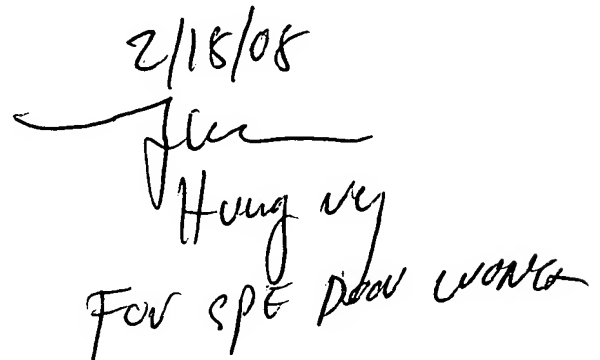 2/18/08
Hung Vy
For SPE Don Wong